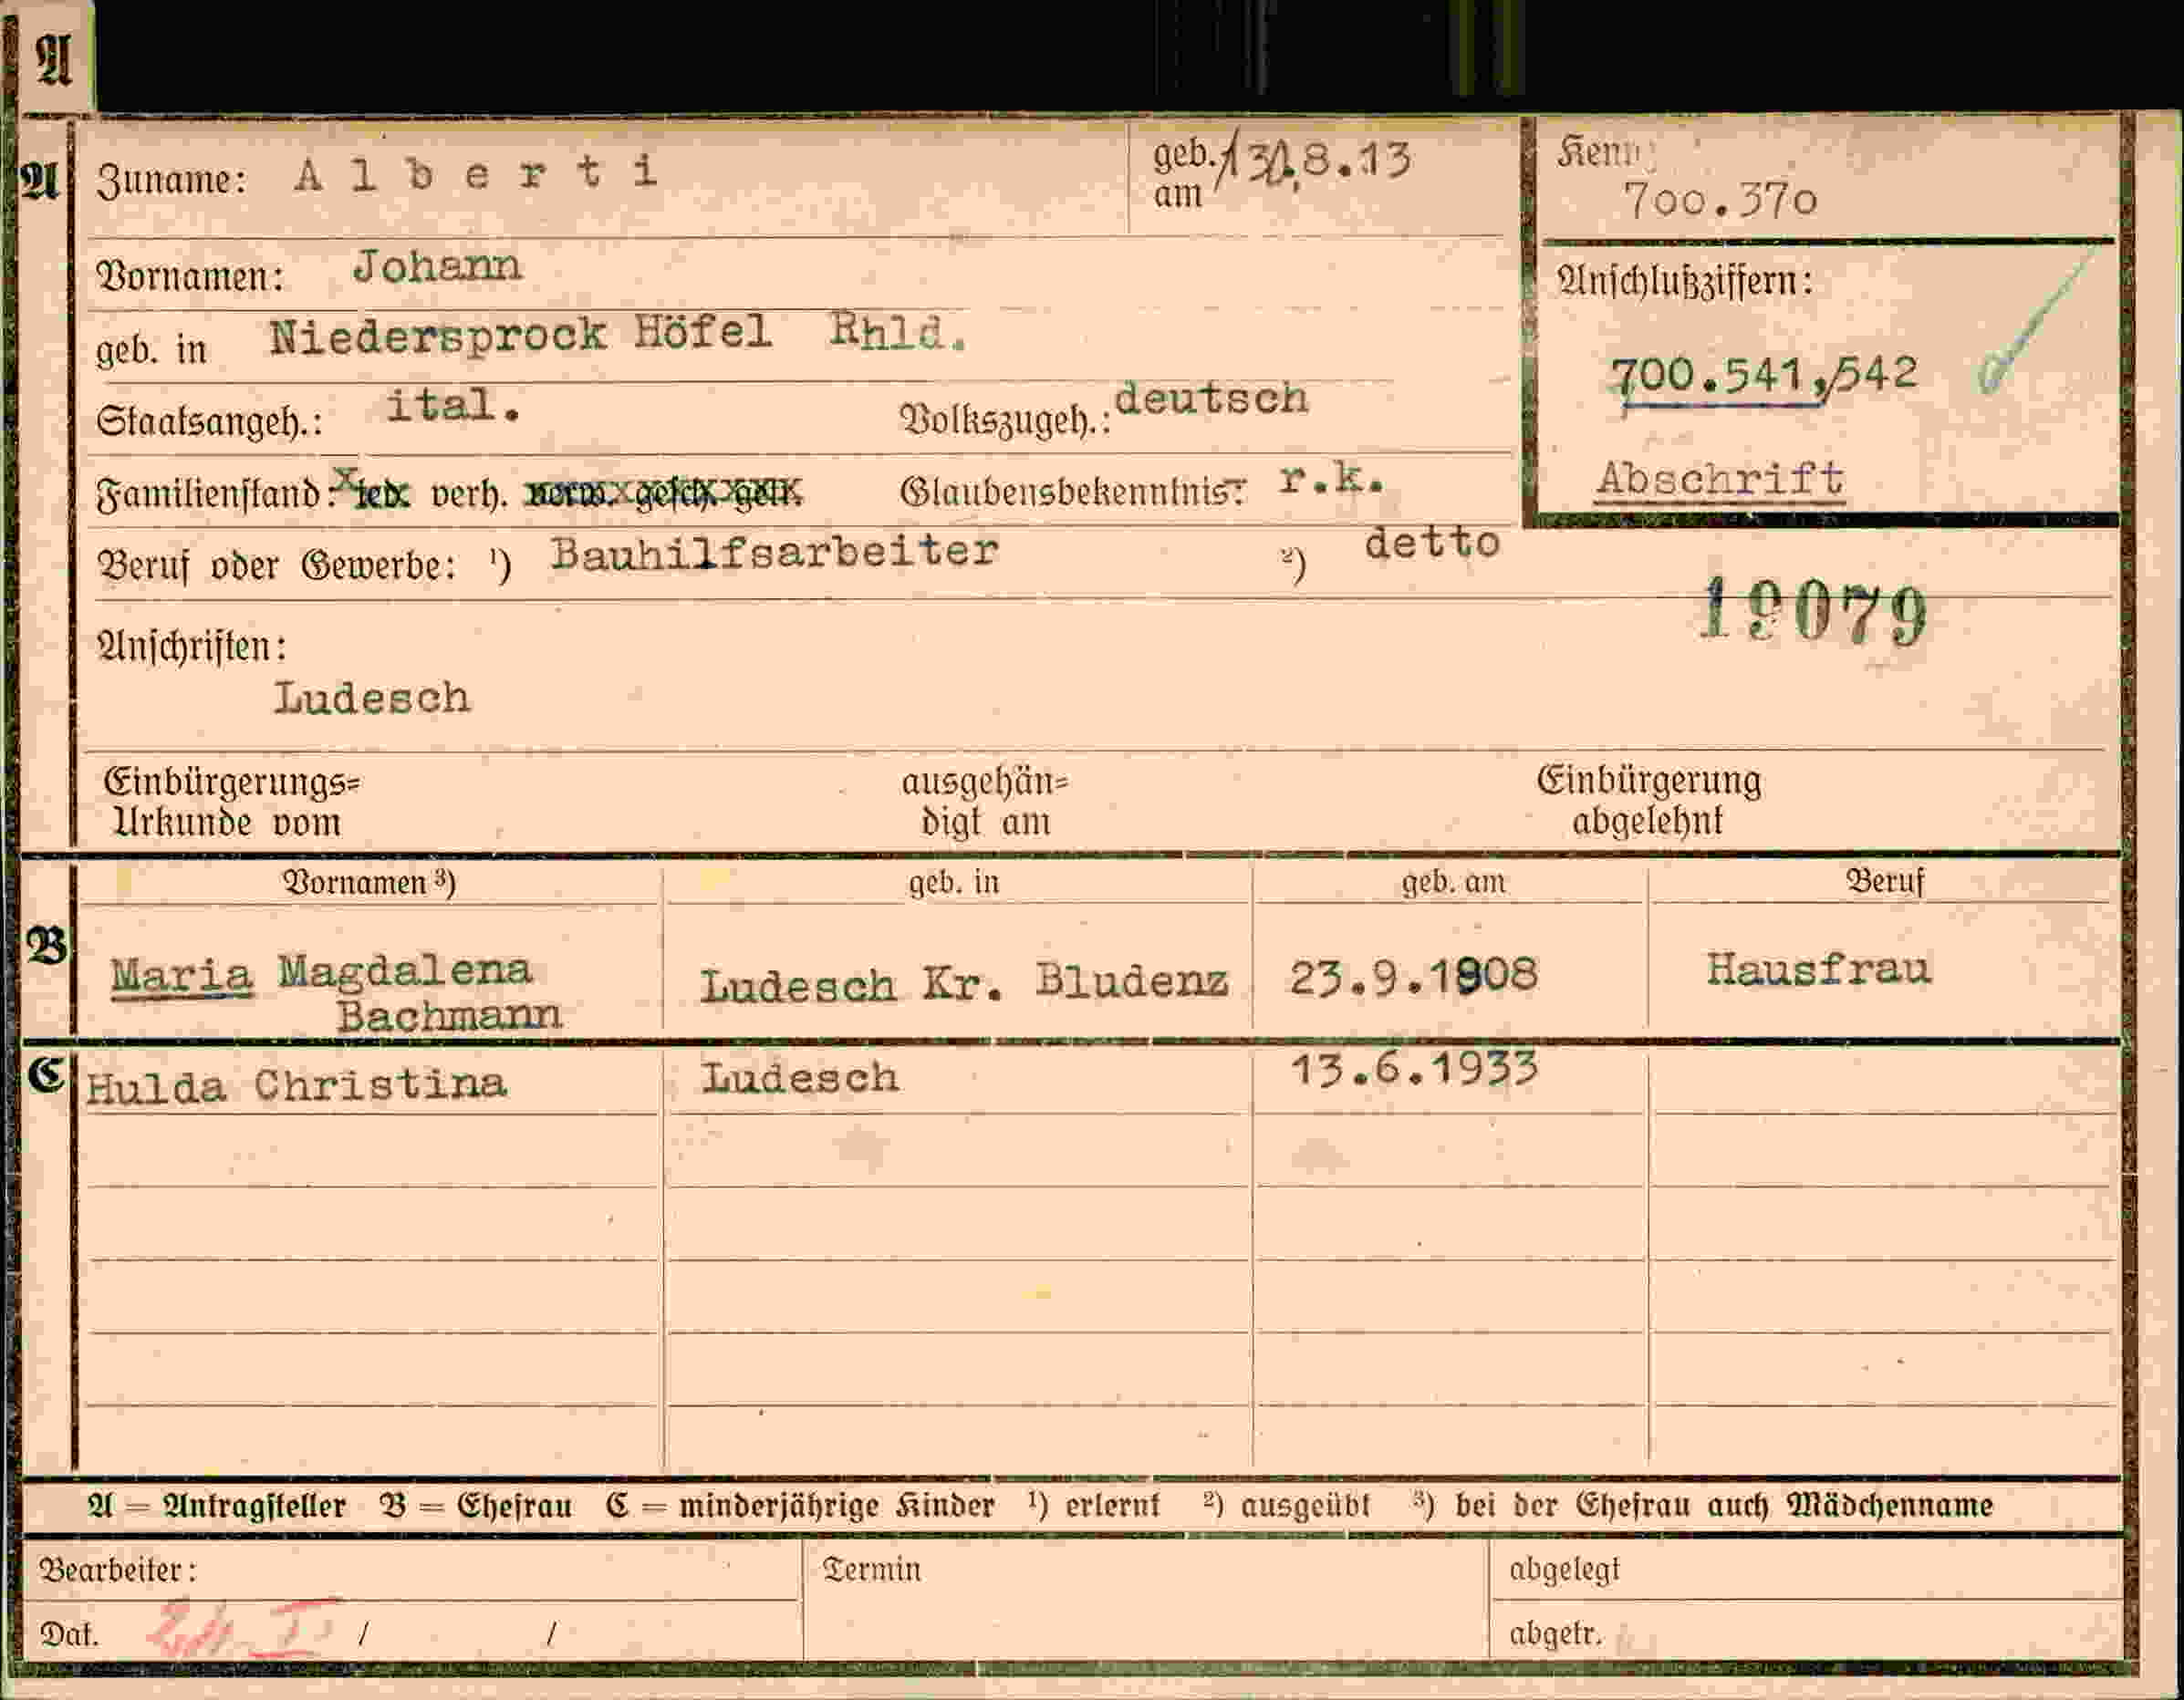 A
A
Zuname: Alberti geb. am 8.13
Kenn 700.370
Vornamen: Johann
Anschlußziffern:
geb. in Niedersprock Höfel Rhld.
700.541,/542
Staatsangeh.: ital. Volkszugeh.: deutsch
Familienstand: led. verh. verw. gesch. getr. Glaubensbekenntnis: r.k.
Abschrift
Beruf oder Gewerbe: ¹) Bauhilfsarbeiter ²) detto
19079
Anschriften:
Ludesch
Einbürgerungs= ausgehän= Einbürgerung
Urkunde vom digt am abgelehnt
Vornamen ³) geb. in geb. am Beruf
B
Maria Magdalena Ludesch Kr. Bludenz 23.9.1908 Hausfrau
Bachmann
C Hulda Christina Ludesch 13.6.1933
A = Antragsteller B = Ehefrau C = minderjährige Kinder ¹) erlernt ²) ausgeübt ³) bei der Ehefrau auch Mädchenname
Bearbeiter: Termin abgelegt
Dat. / / abgetr.